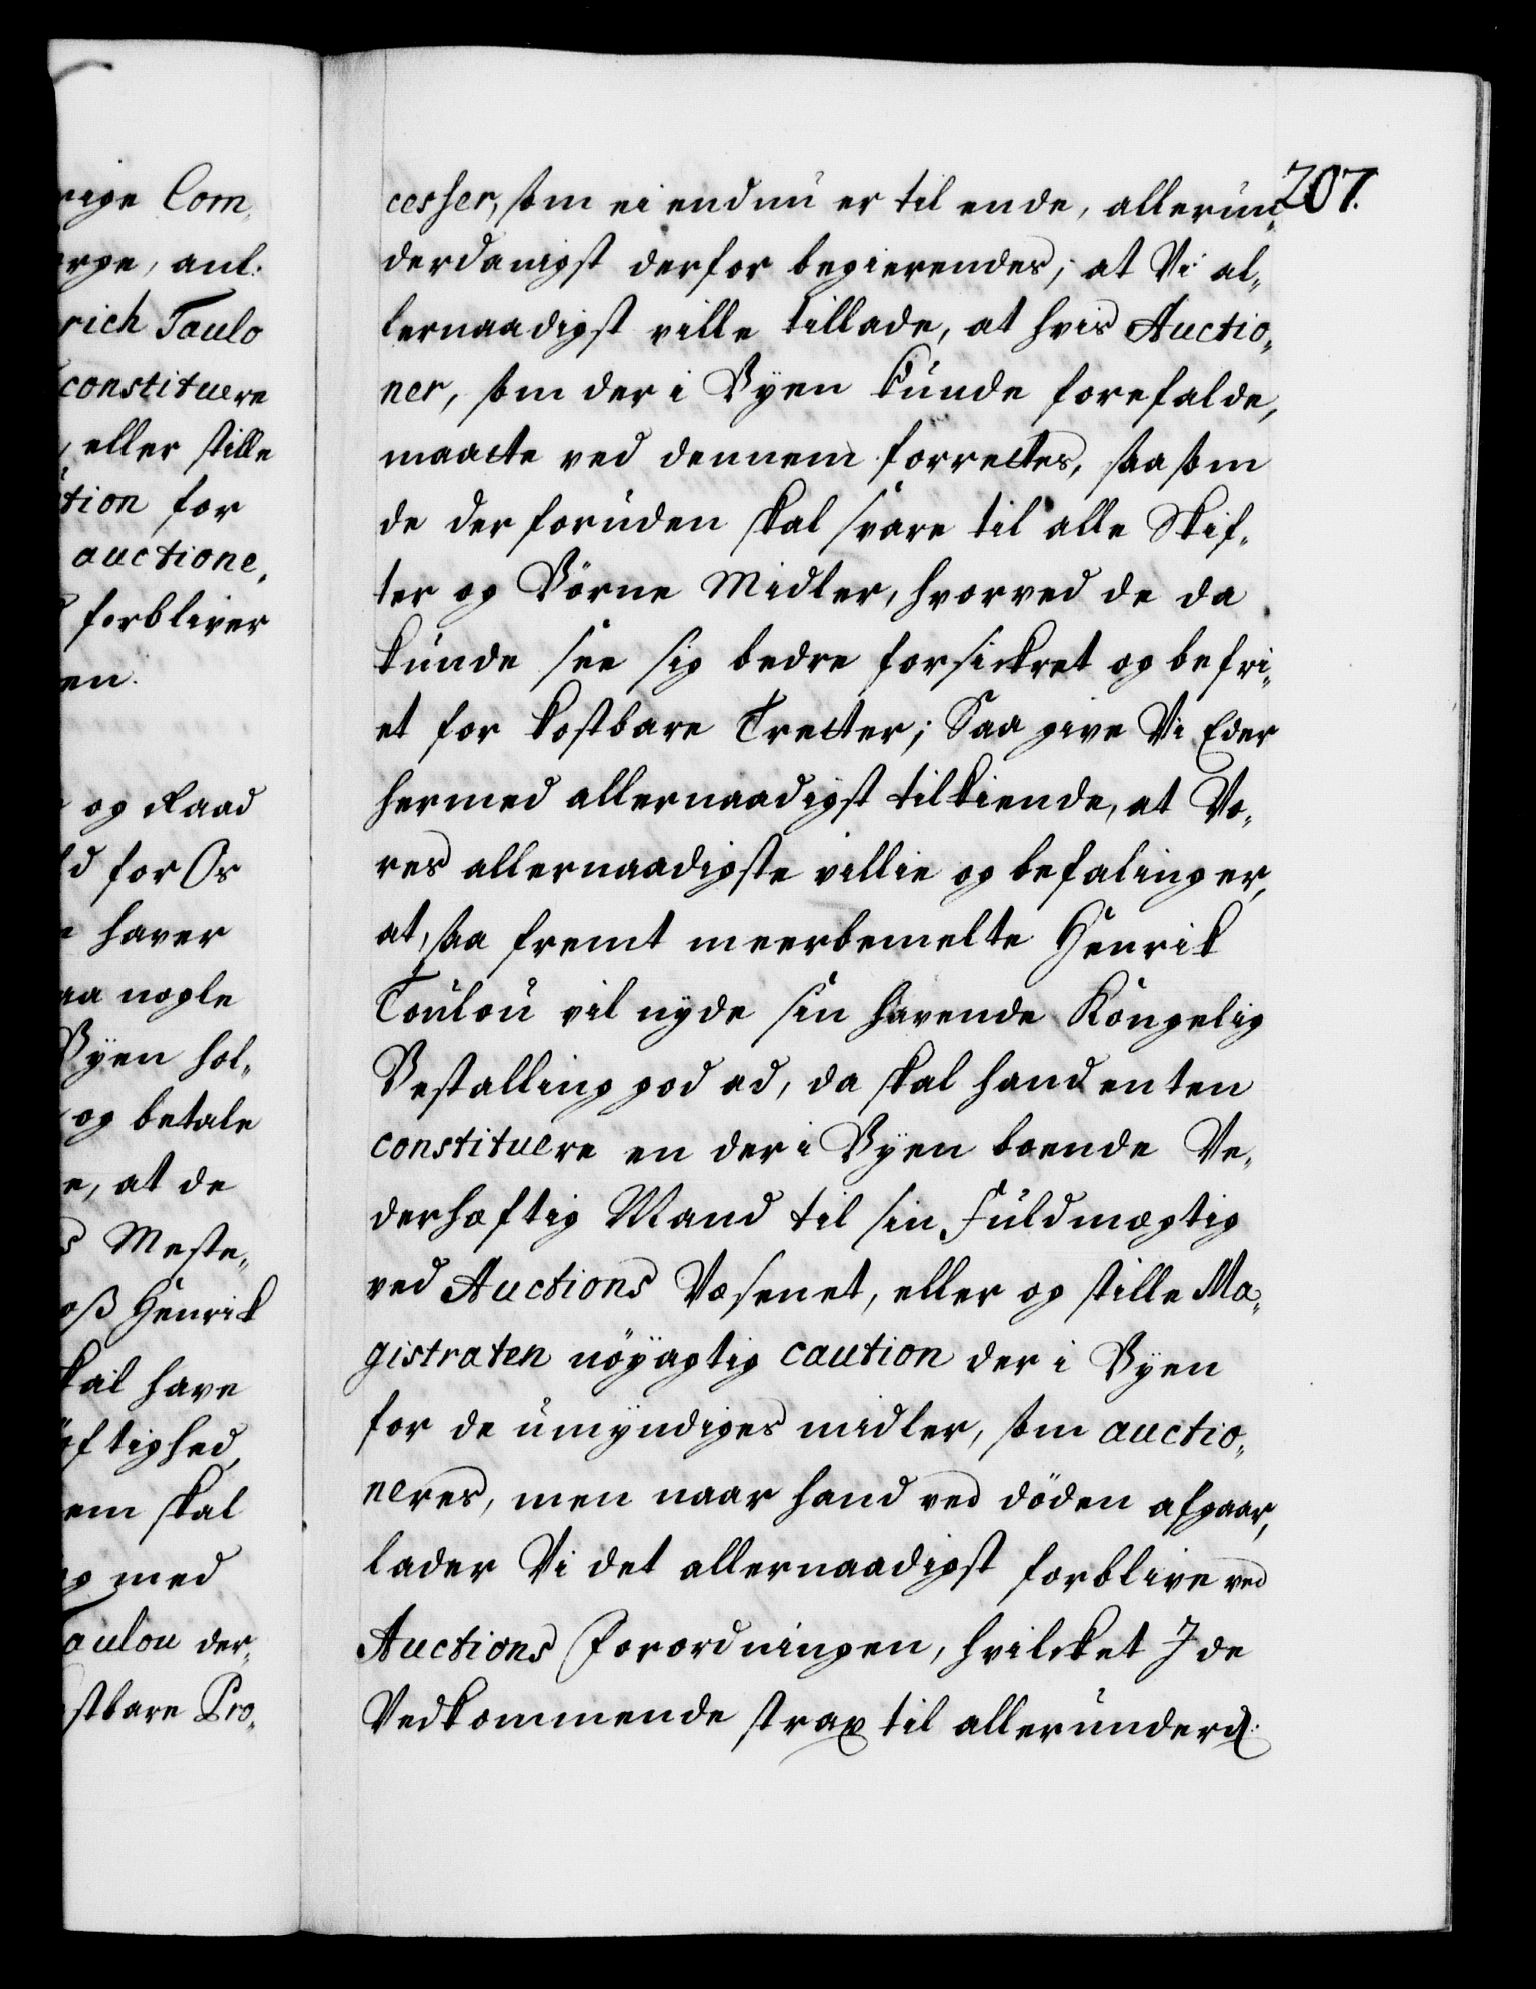 rige Com¬
rge, anl.
rich Taulo
constituere
eller stille
tion for
auctione¬
forbliver
en.
og Raad
d for Os
haver
aa nogle
Byen hol¬
og betale
e, at de
s Meste¬
oß Henrik
skal have
æftighed,
em skal
og med
aulou der¬
stbare Pro¬
207.
cesser, som ei endnu er til ende, allerun¬
derdanigst derfor begierendes, at Vi al¬
lernaadigst ville tillade, at hvis Auctio¬
ner, som der i Byen kunde forefalde,
maatte ved dennem forrettes, saasom
de der foruden skal svare til alle Skif¬
ter og Börne Midler, hvorved de da
kunde see sig bedre forsickret og befri¬
et for kostbare Tretter; Saa give Vi Eder
hermed allernaadigst tilkiende, at Vo¬
res allernaadigste villie og befaling er,
at, saa fremt meerbemelte Henrik
Toulou vil nyde sin havende Kongelig
Bestalling god ad, da skal hand enten
constituere en der i Byen boende Ve¬
derhæftig Mand til sin Fuldmægtig
ved Auctions Væsenet, eller og stille Ma¬
gistraten nöyagtig caution der i Byen
for de umyndiges midler, som auctio¬
neres, men naar hand ved döden afgaar,
lader Vi det allernaadigst forblive ved
Auctions Forordningen, hvilcket I de
Vedkommende strax til allerunderd.